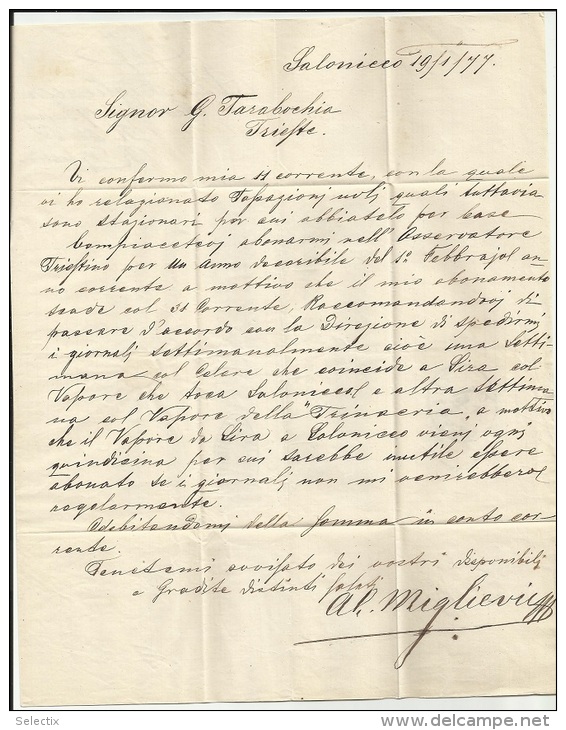 Salonicco 19/1/77.
Signor G. Tarabochia
Trieste.
Vi confermo mia 11 corrente, con la quale
vi ho relazionato quali tuttavia
sono stazionari per cui abbiatelo per base
Compiacetevi abonarmi nell'Osservatore
Triestino per un Anno decoribile del 1º Febbrajo an=
no corrente a mottivo che il mio abonamento
scade col 31 Corrente, Raccomandandovi di
passare d'accordo con la Direzione di spedirmi
i giornali settimanalmente cioè una Setti=
mana col Celere che coincide a Sira col
Vapore che toca Salonicco e altra Settima
na col Vapore della "Trinacria" a mottivo
che il Vapore da Sira a Salonicco vieni ogni
quindicina per cui sarebbe inutile essere
abonato se i giornali non mi venirebbero
regolarmente.
Adebitandomi della Somma in conto cor=
rente.
Tenetemi avvisato dei vostri disponibili
e Gradite distinti saluti
Al. Miglievich
Selectix
www.delcampe.net